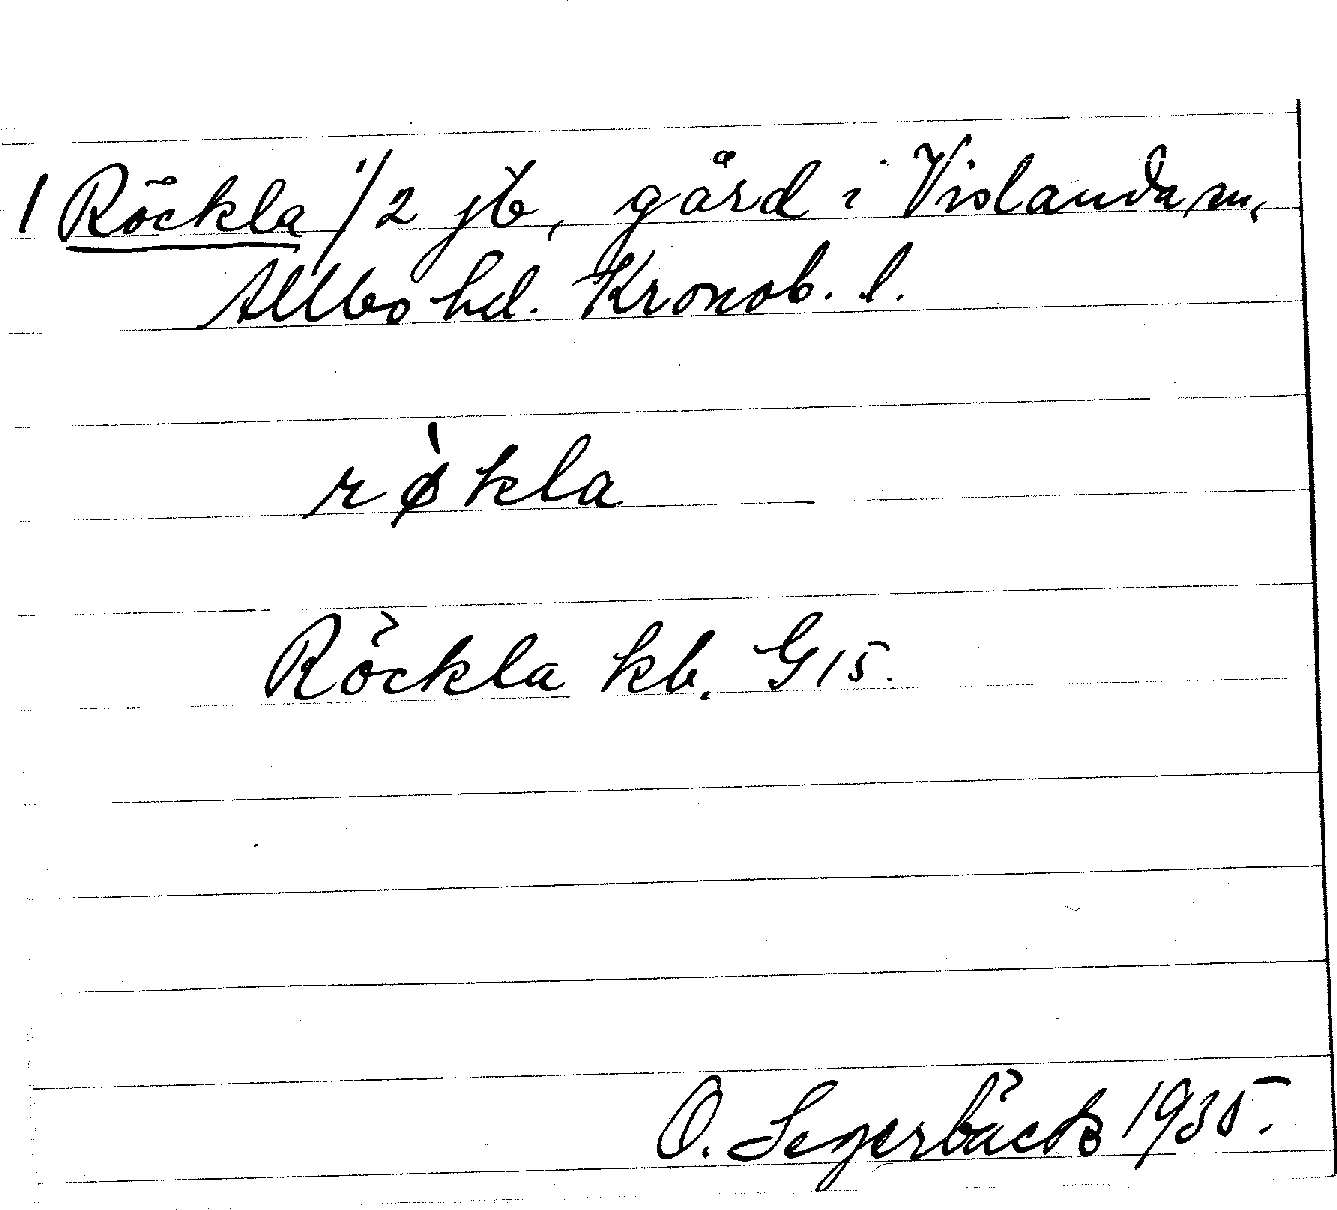 1 Röckla 1/2 jb, gård i Vislanda sn,
Allbo hd. Kronob. l.
rø̀kla
Röckla kb. G15.
O. Segerbäck 1935.